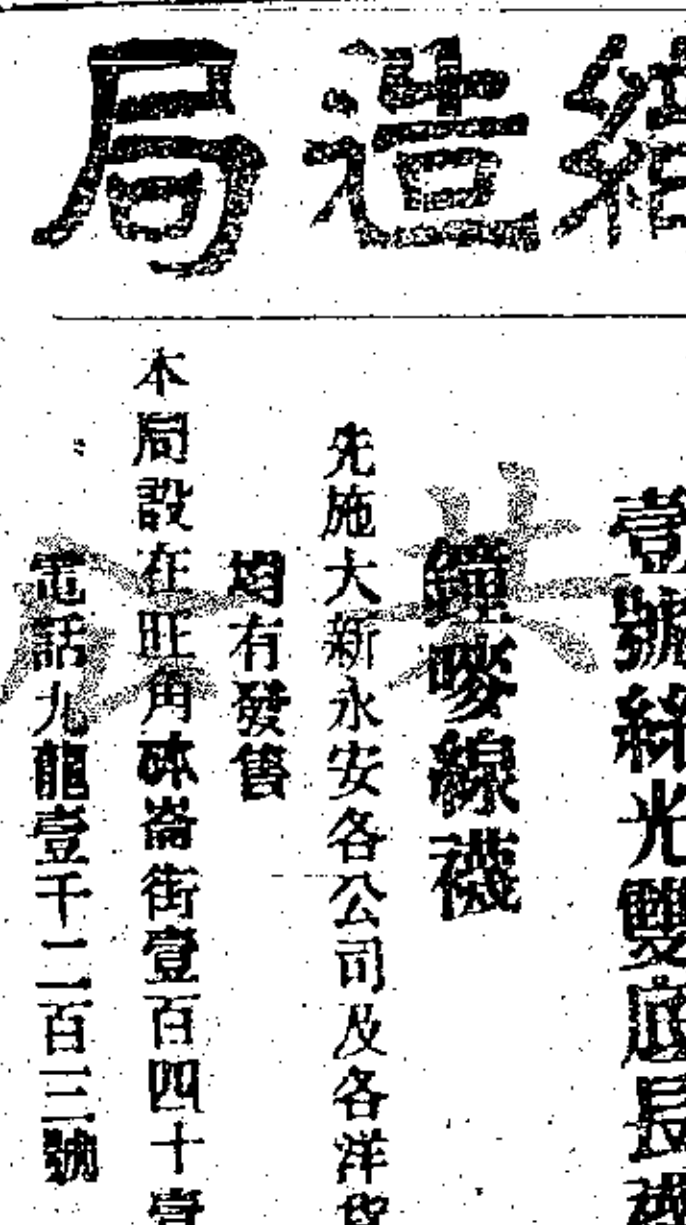 造局
壹號絲光雙底長襪
鐘嘜線襪
先施大新永安各公司及各洋貨
均有發售
本局設在旺角砵崙街壹百四十壹
電話九龍壹千二百三號